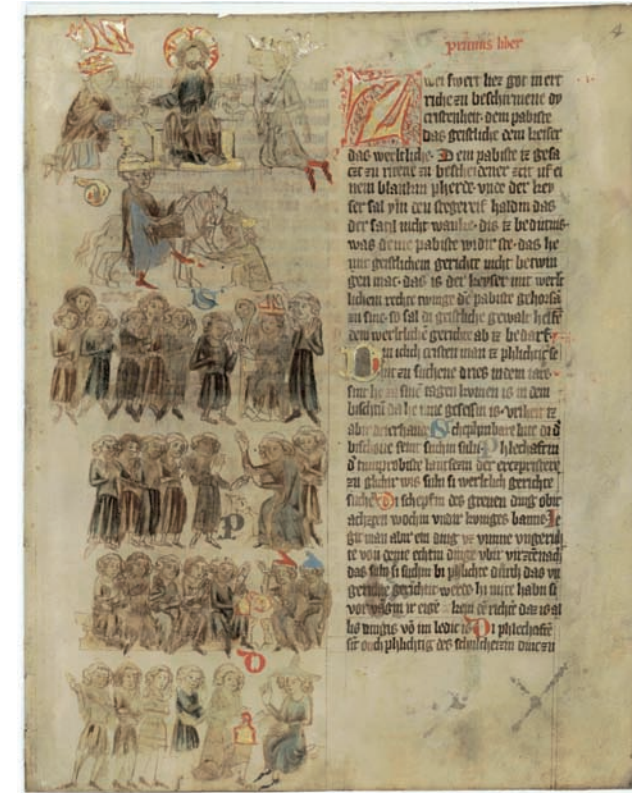 primus liber
4
Zwei swert liez got in ert
riche zu beschirmene dy
cristenheit. dem pabiste
das geistliche dem keiser
das werltliche. Dem pabiste iz gesa
czt zu ritene zu bescheidener zcit uf ei
nem blankin pherde. unde der key
ser sal ym den stegereif haldin das
der satil nicht wanke. dis iz bedutnis.
was deme pabiste widir ste. das he
mit geistlichem gerichte nicht betwin
gen mac. das is der keyser mit werlt
lichem rechte twinge dē pabiste gehorsā
zu sine. so sal di geistliche gewalt helfē
dem werltlichē gerichte ab iz bedarf.
cristen man iz phlichtic se
zu suchene dries in dem iare
sint he zu sinē tagen komen is in dem
bischtū da he inne gesessin is. vriheit iz
abir drierhande Schephinbare lute di d'
bischove senit suchin suln. Phlechaftin
d' tumprobiste lantsezin der erczpristere
zu glichir wis suln si werltlich gerichte
suchē Di schephin des greven ding obir
achzen wochin vndir koniges banne. Le
git man abir ein ding vz vmme vngerich
te von deme echtin dinge vbir virzennach
das suln si suchin
gerichte gerichtit werde
vor ir eige kein richter
vō im ledic is Di phlechaftē
sit ouch phlichtig des schultheizin dinc zu